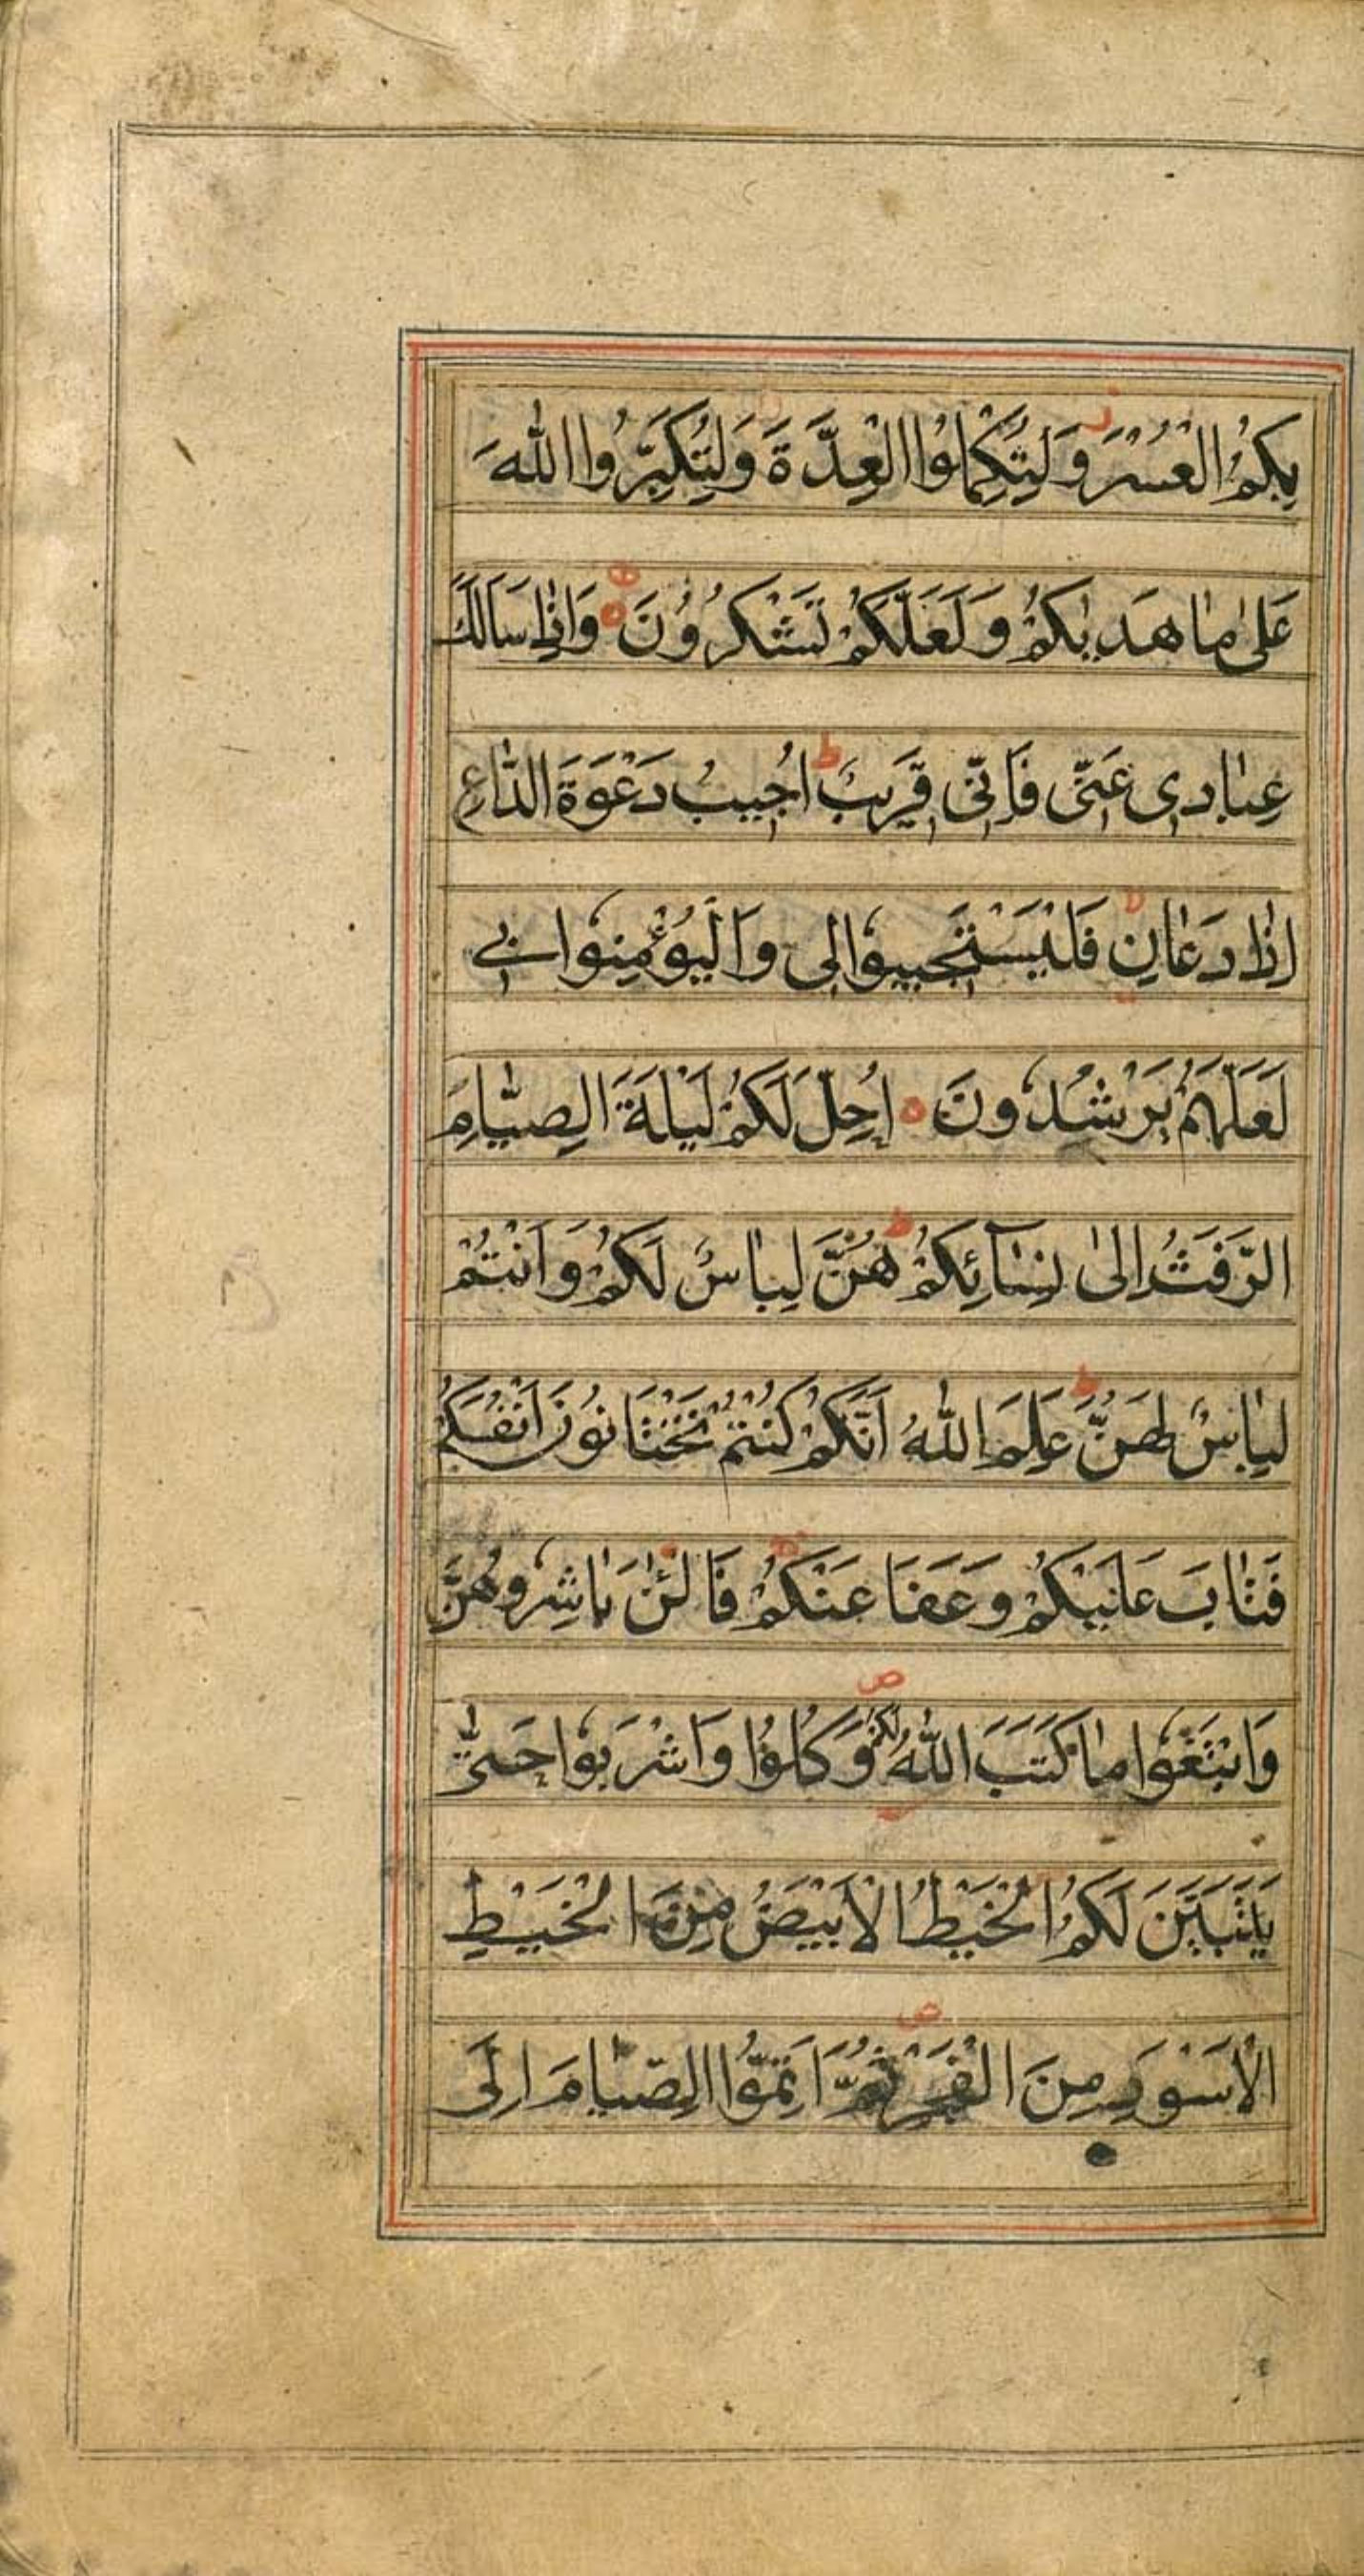 بِكُمُ الْعُسْرَ وَلِتُكْمِلُوا الْعِدَّةَ وَلِتُكَبِّرُوا اللّٰهَ
عَلٰى مٰا هَدٰيكُمْ وَ لَعَلَّكُمْ تَشْكُرُونَ ه وَاِذٰا سَاَلَكَ
عِبٰادى عَنّى فَاِنّى قَريبٌ ط اُجيبُ دَعْوَةَ الدّٰاعِ
اِذٰا دَعٰانِ فَلْيَسْتَجيبوُا لى وَ الْيُؤْمِنوُا بى
لَعَلَّهُمْ يَرْشُدوُنَ ه اُحِلَّ لَكُمْ لَيْلَةَ الصِّيٰامِ
الرَّفَثُ اِلٰى نِسٰآئِكُمْ ط هُنَّ لِبٰاسٌ لَكُمْ وَ اَنْتُمْ
لِبٰاسٌ لَهُنَّ ط عَلِمَ اللّٰهُ اَنَّكُمْ كُنْتُمْ تَخْتٰانوُنَ اَنْفُسَكُمْ
فَتٰابَ عَلَيْكُمْ وَ عَفَا عَنْكُمْ فَالْئٰنَ بٰاشِروُهُنَّ
وَابْتَغوُا مٰا كَتَبَ اللّٰهُ لَكُمْ ص وَ كُلوُا وَاشْرَبوُا حَتّٰى
يَتَبَيَّنَ لَكُمُ الْخَيْطُ الْاَبْيَضُ مِنَ الْخَيْطِ
الْاَسْوَدِ مِنَ الْفَجْرِ ص ثُمَّ اَتِمُّوا الصِّيٰامَ اِلَى